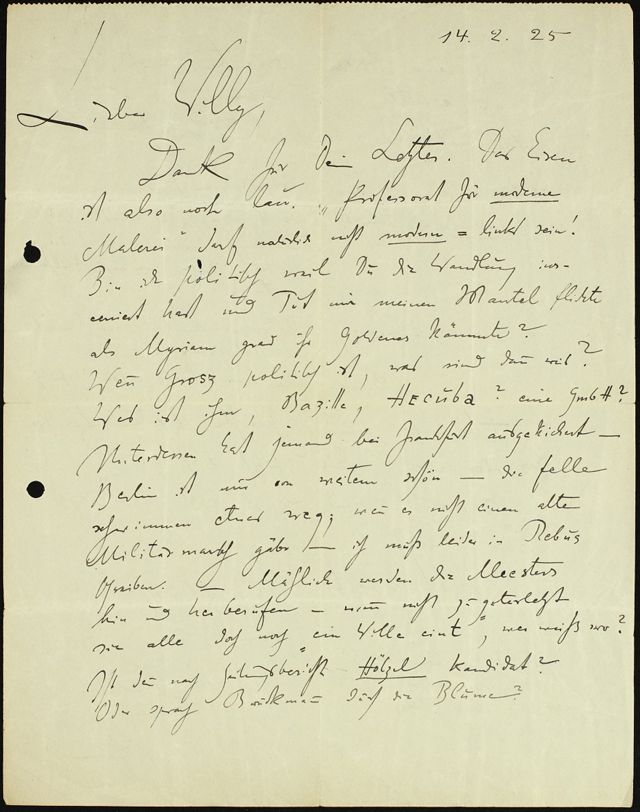 14. 2. 25
Lieber Willy,
Dank für Dein Letztes. Das Eisen
ist also noch lau. „Professorat für moderne
Malerei" darf natürlich nicht modern = links sein!
Bin ich politisch weil Du die Wandlung ins-
ceniert hast und Tut mir meinen Mantel flickte
als Myriam grad ihr Goldenes kämmte?
Wenn Grosz politisch ist, was sind dann wir?
Was ist ihm, Bazille, HECUBA? eine GmbH?
Unterdessen hat jemand bei Frankfurt ausgekichert —
Berlin ist nur von weitem schön — die Felle
schwimmen etwas weg; wenn es nicht einen alten
Militärmarsch gäbe — ich muß leider in Rebus
schreiben. — Möglich werden die Meesters
hin und her berufen — wenn nicht zuguterletzt
sie alle doch noch „ein Wille eint", wer weiß wo?
Ist denn nach Zeitungsbericht Hölzel Kandidat?
Oder sprach durch die Blume?